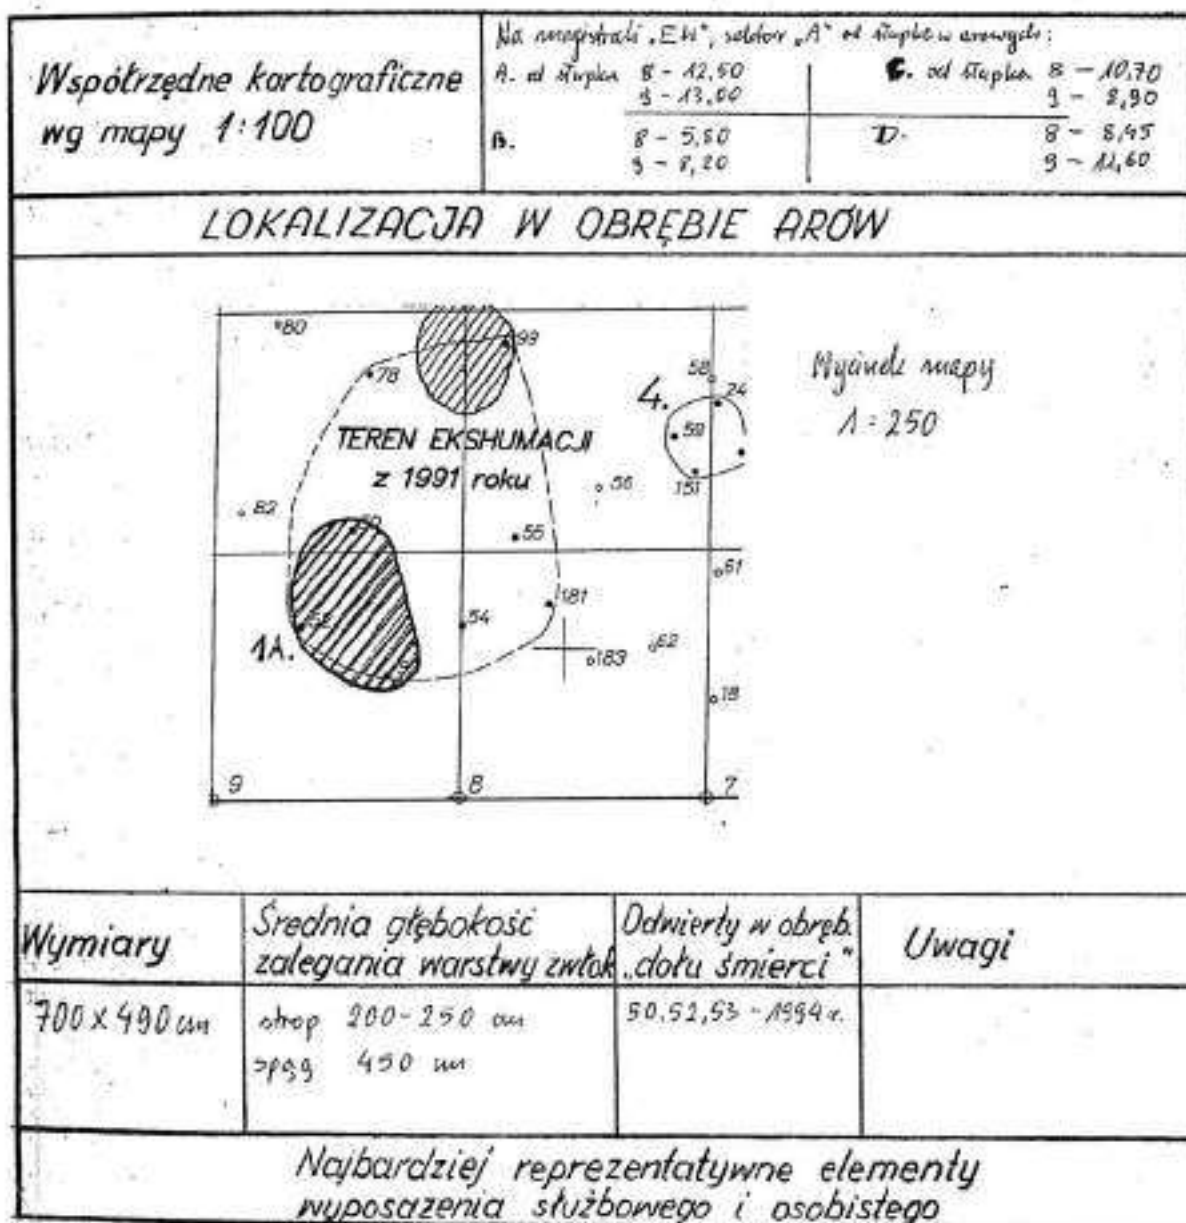 Współrzędne kartograficzne
wg mapy 1:100
Na magistrali „EW”, sektor „A” od słupków arowych:
A. od słupka 8 - 12,50
9 - 13,00
B. 8 - 5,80
9 - 8,20
C. od słupka 8 - 10,70
9 - 8,90
D. 8 - 8,45
9 - 11,60
LOKALIZACJA W OBRĘBIE ARÓW
80
99
78
58
24
4.
59
TEREN EKSHUMACJI
z 1991 roku
151
56
82
50
55
61
181
52
54
1A.
183
62
18
9
8
7
Wycinek mapy
1:250
Wymiary
Średnia głębokość
zalegania warstwy zwłok
Odwierty w obręb.
„dołu śmierci”
Uwagi
700 x 490 cm
strop 200-250 cm
spąg 450 cm
50,52,53 - 1994 r.
Najbardziej reprezentatywne elementy
wyposażenia służbowego i osobistego